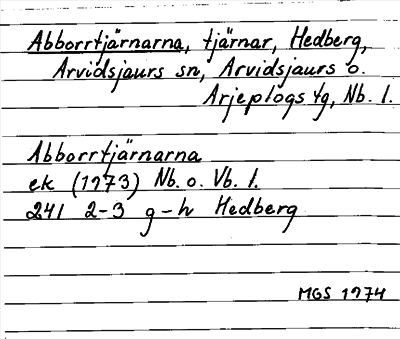 Abborrtjärnarna, tjärnar, Hedberg,
Arvidsjaurs sn, Arvidsjaurs o.
Arjeplogs tg, Nb. l.
Abborrtjärnarna
ek (1973) Nb. o. Vb. l.
241 2-3 g-h Hedberg
MGS 1974